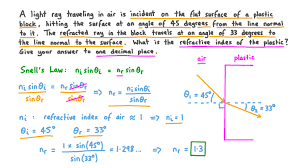 A light ray traveling in air is incident on the flat surface of a plastic
block, hitting the surface at an angle of 45 degrees from the line normal
to it. The refracted ray in the block travels at an angle of 33 degrees to
the line normal to the surface. What is the refractive index of the plastic?
Give your answer to one decimal place.
Snell's Law: nᵢ sinθᵢ = nᵣ sinθᵣ
nᵢ sinθᵢ / sinθᵣ = nᵣ sinθᵣ / sinθᵣ => nᵣ = nᵢ sinθᵢ / sinθᵣ
nᵢ : refractive index of air ≈ 1 => nᵢ = 1
θᵢ = 45° θᵣ = 33°
nᵣ = 1 × sin(45°) / sin(33°) = 1.298... => nᵣ = 1.3
air plastic
θᵢ = 45°
θᵣ = 33°